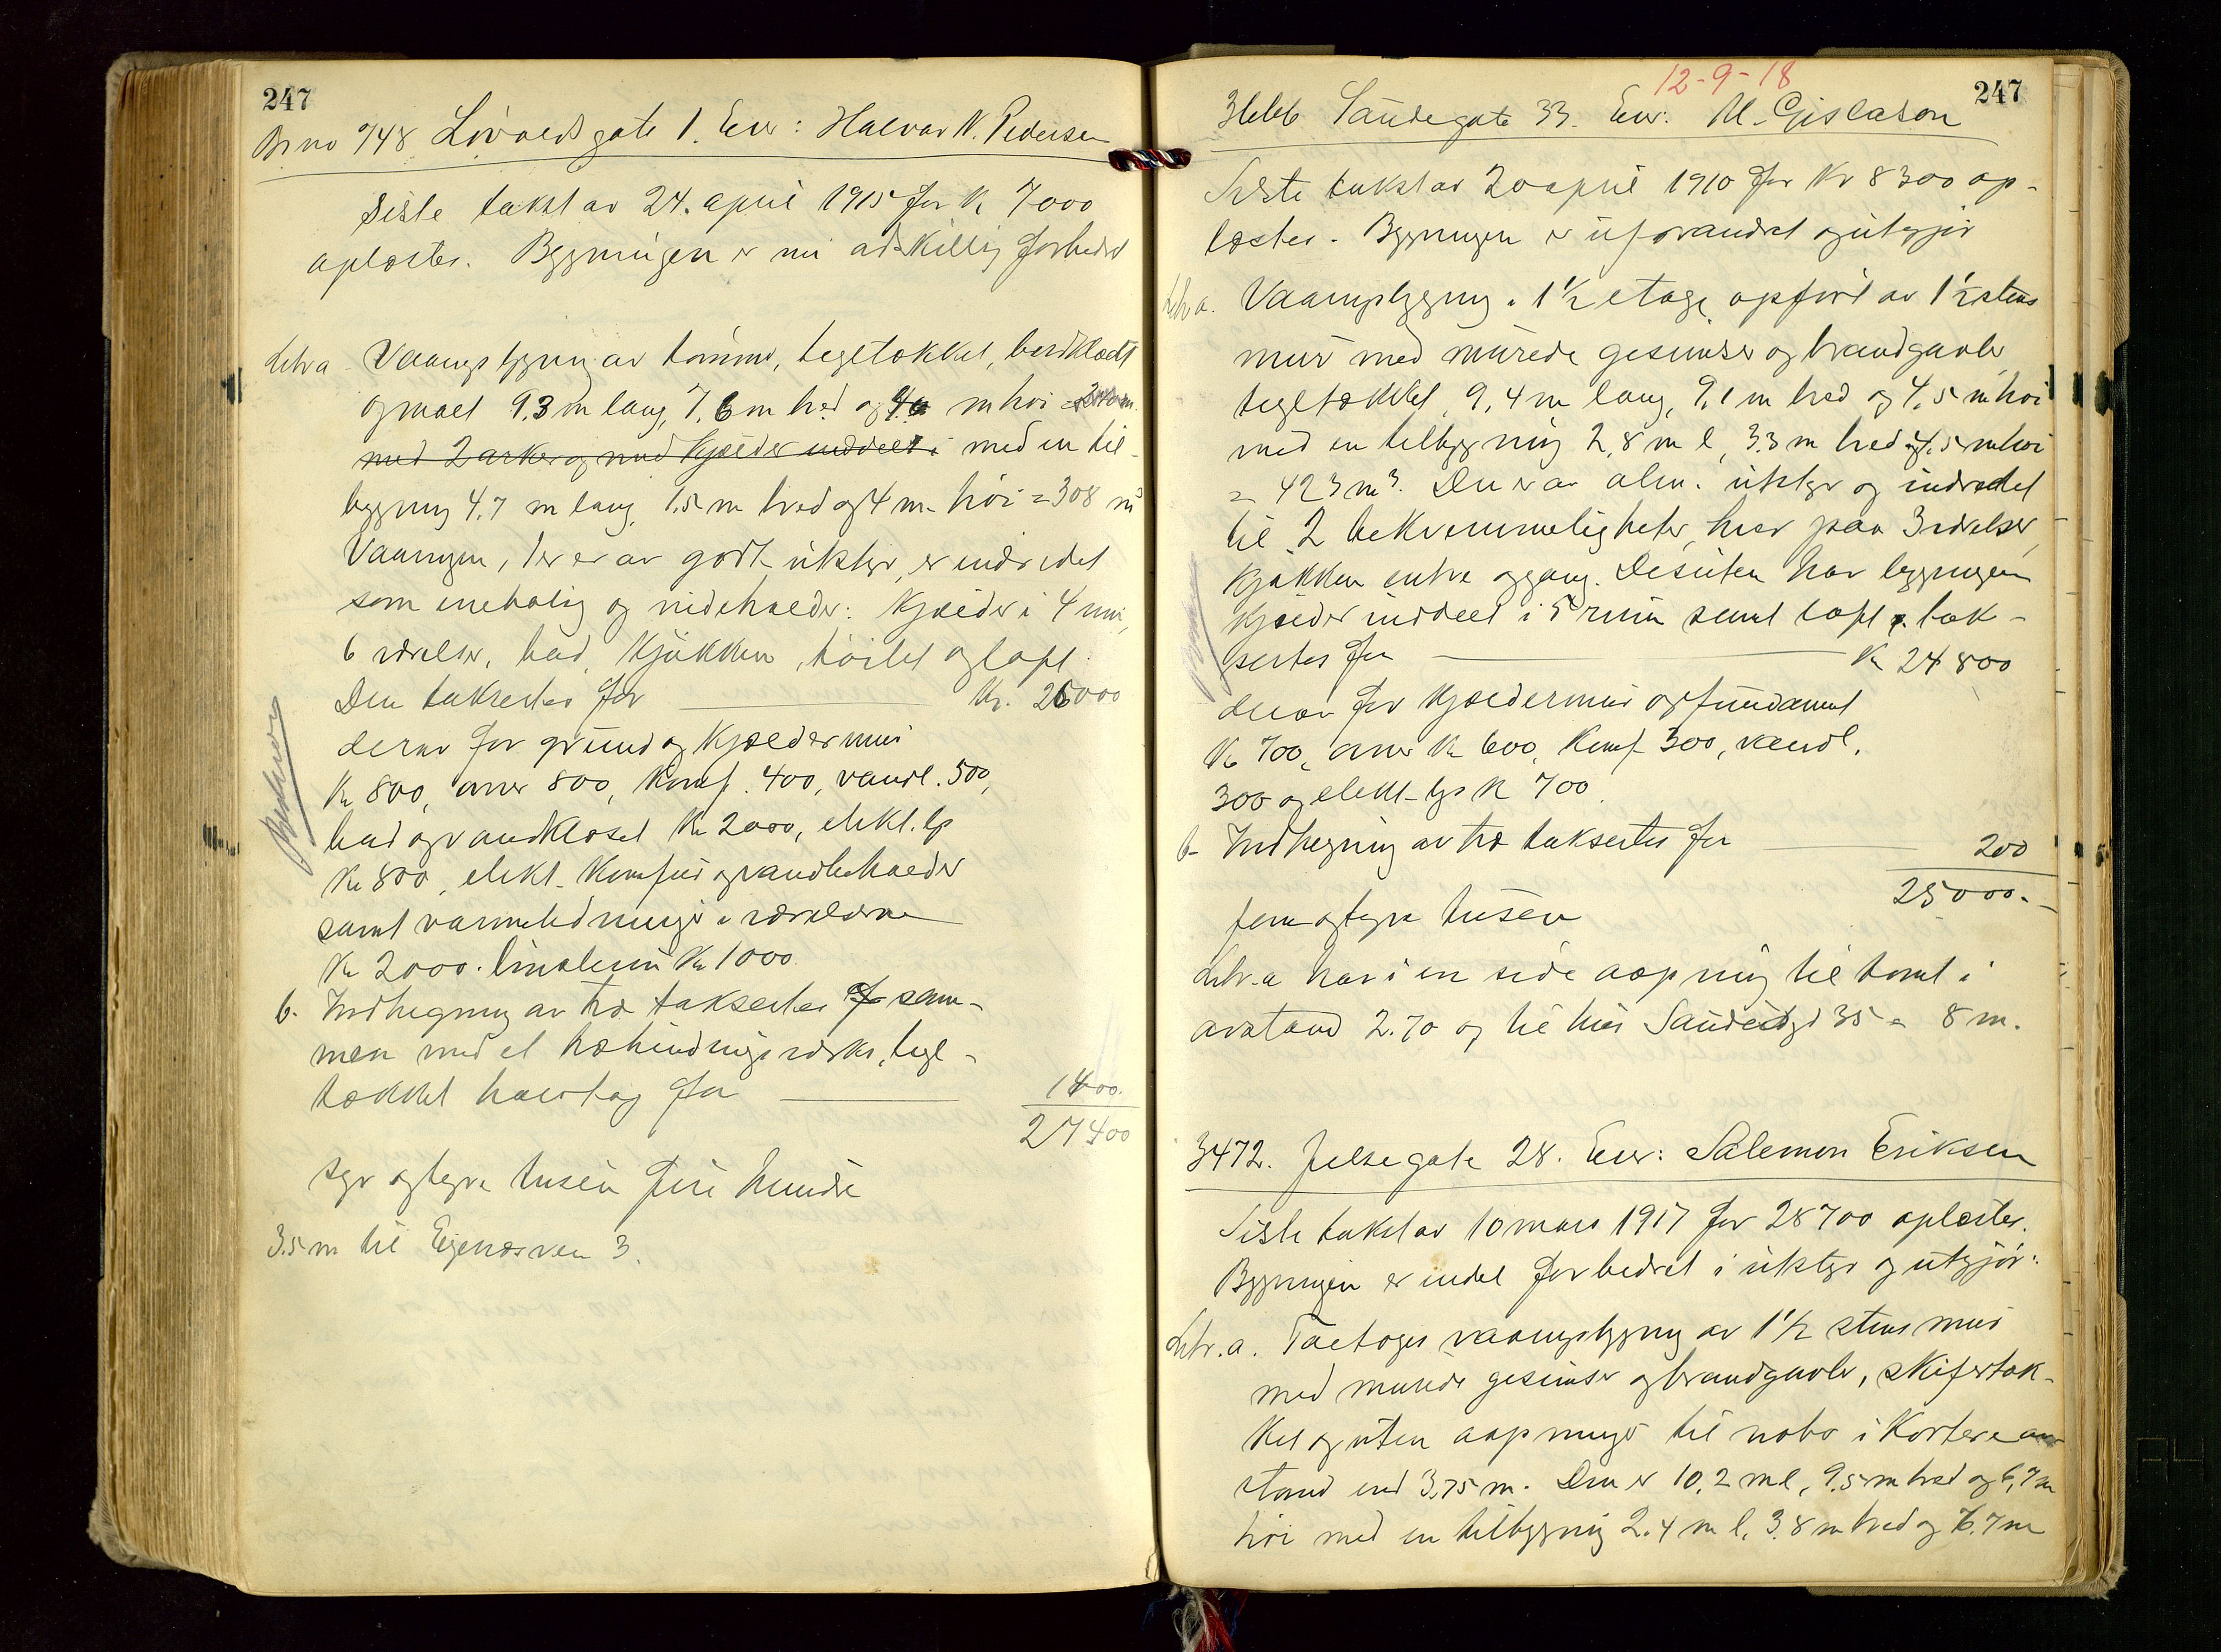 247
Br no 748 Lövoldsgate 1. Eier: Halvar N. Pedersen
Siste takst av 24. april 1915 for Kr 7000
oplæstes. Bygningen er nu adskillig forbedret
Litr a Vaaningsbygning av tömmer, tegltækket, bordklædt
og maal 9.3 m lang, 7.6 m bred og m höi
med 2 arker og med Kjælder inddelt i med en til-
bygning 4.7 m lang, 1.5 m bred og 4 m. höi = 308 m³
Vaaningen, der er av godt utstyr, er indredet
som enebolig og indeholder: Kjælder i 4 rum,
6 værelser, bad, Kjökken, toilet og loft.
Den takseres for Kr. 26000
derav for grund og Kjældermur
Kr 800, ovner 800, Komf. 400, vandl. 500,
bad og vandkloset Kr 2000, elekt. lys
Kr 800, elekt. Komfur og vandbeholder
samt varmeledninger i værelserne
Kr 2000. linoleum Kr 1000
b. Indhegning av træ takseres for sam-
men med et træbindingsverks, tegl-
tækket hus for 1400.
27400
syv og tyve tusen fire hundre
3.5 m til Eiganesveien 3.
12-9-18
247
3466 Saudegate 33. Eier: M. Gislason
Siste takst av 20 april 1910 for Kr 8300 op-
læstes. Bygningen er uforandret og utgjör
Litr a. Vaaningsbygning i 1½ etage opfört av 1½ stens
mur med murede gesimser og brandgavler,
tegltækket, 9,4 m lang, 9,1 m bred og 4,5 m höi
med en tilbygning 2,8 m l, 3.3 m bred og 4.5 m höi
= 423 m³. Den er av alm. utstyr og indredet
til 2 bekvemmeligheter, hver paa 3 værelser,
Kjökken entre og gang. Desuten har bygningen
Kjælder inddeelt i 5 rum samt loft. tak-
seres for Kr 24800
derav for Kjældermur og fundament
Kr 700, ovner Kr 600, Komf. 300, vandl.
300 og elekt. lys Kr 700.
b. Indhegning av træ takseres for 200
25000.-
fem og tyve tusen
Litr. a har i en side aapning til tomt i
avstand 2.70 og til hus Saudegt 35 = 8 m.
3472. Jelsegate 28. Eier: Salemon Eriksen
Siste takst av 10 mars 1917 for 28700 oplæstes.
Bygningen er endel forbedret i utstyr og utgjör:
Litr. a. Toetages vaaningsbygning av 1½ stens mur
med murede gesimser og brandgavler, skifertæk-
ket og uten aapninger til nabo i Kortere av-
stand end 3.75 m. Den er 10,2 m l, 9.5 m bred og 6,7 m
höi med en tilbygning 2.4 m l, 3.8 m bred og 6.7 m